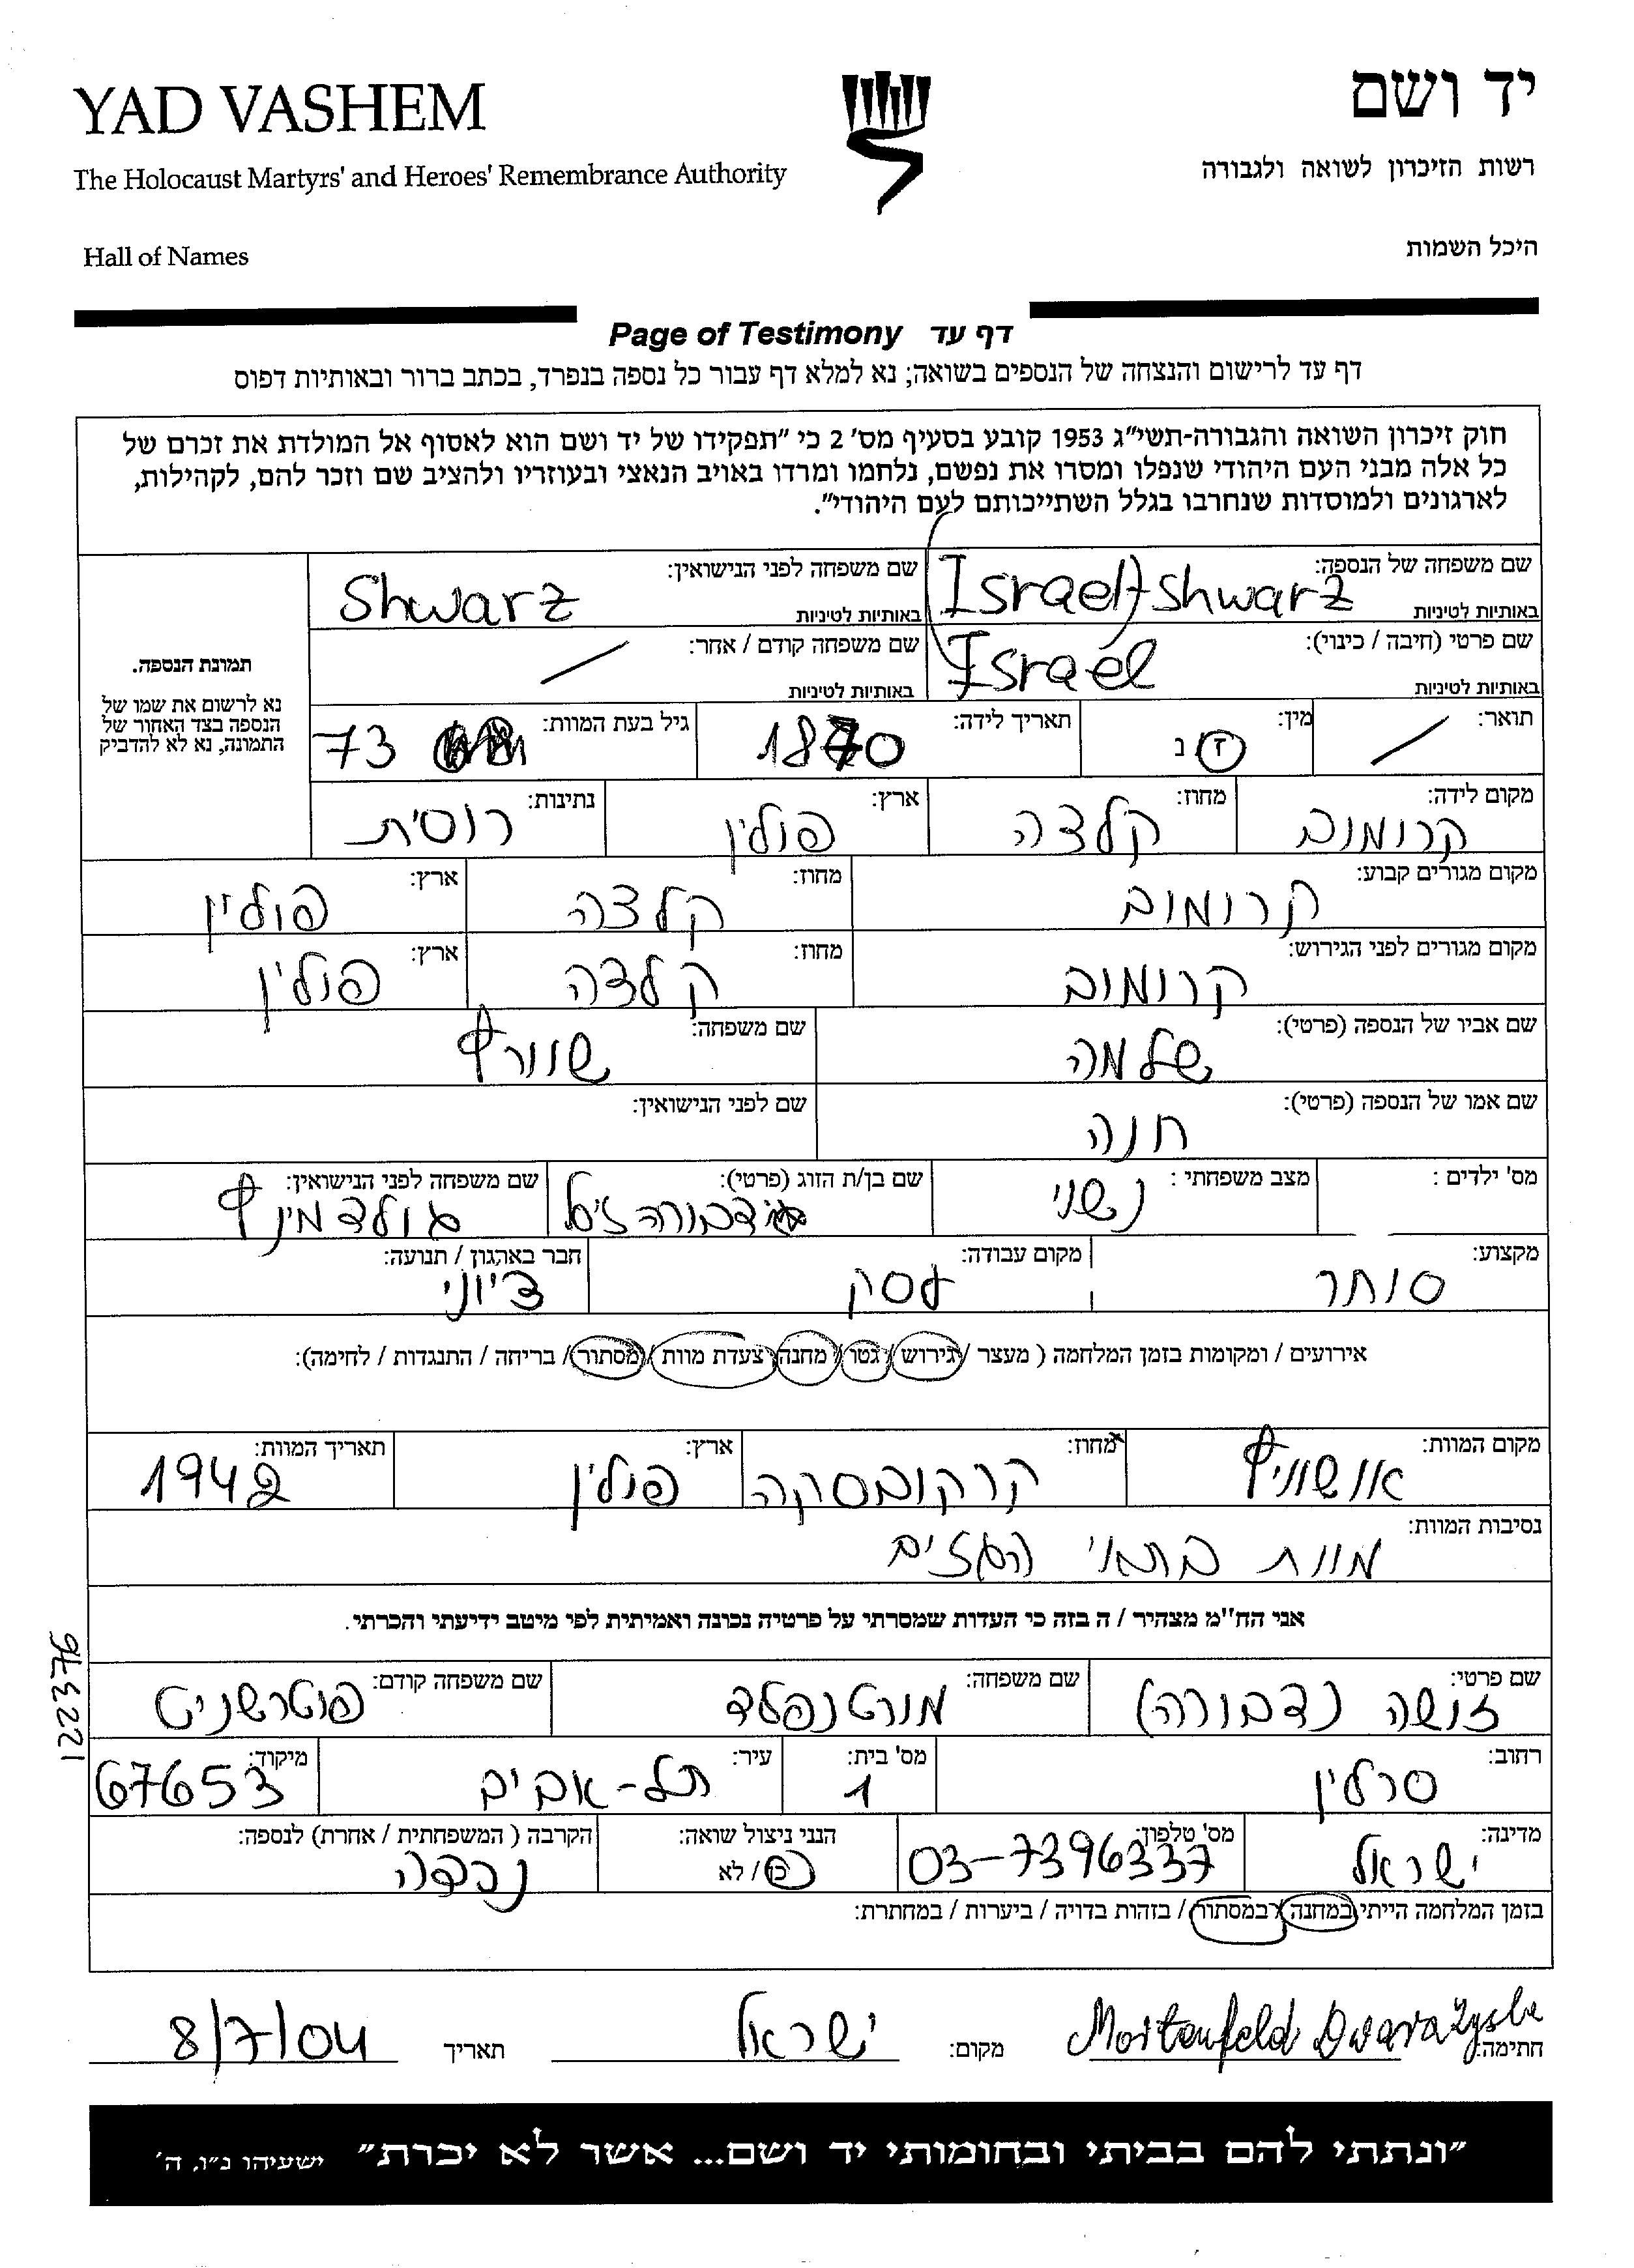 YAD VASHEM
יד ושם
The Holocaust Martyrs' and Heroes' Remembrance Authority
רשות הזיכרון לשואה ולגבורה
Hall of Names
היכל השמות
Page of Testimony דף עד
דף עד לרישום והנצחה של הנספים בשואה; נא למלא דף עבור כל נספה בנפרד, בכתב ברור ובאותיות דפוס
חוק זיכרון השואה והגבורה-תשי"ג 1953 קובע בסעיף מס' 2 כי "תפקידו של יד ושם הוא לאסוף אל המולדת את זכרם של
כל אלה מבני העם היהודי שנפלו ומסרו את נפשם, נלחמו ומרדו באויב הנאצי ובעוזריו ולהציב שם וזכר להם, לקהילות,
לארגונים ולמוסדות שנחרבו בגלל השתייכותם לעם היהודי".
שם משפחה של הנספה: Israel Shwarz באותיות לטיניות
שם משפחה לפני הנישואין: Shwarz באותיות לטיניות
שם פרטי (חיבה / כינוי): Israel באותיות לטיניות
שם משפחה קודם / אחר: / באותיות לטיניות
תמונת הנספה.
נא לרשום את שמו של
הנספה בצד האחור של
התמונה, נא לא להדביק
תואר: / מין: ז נ תאריך לידה: 1870 גיל בעת המוות: 73
מקום לידה: קרומוב מחוז: קלצה ארץ: פולין נתינות: רוסית
מקום מגורים קבוע: קרומוב מחוז: קלצה ארץ: פולין
מקום מגורים לפני הגירוש: קרומוב מחוז: קלצה ארץ: פולין
שם אביו של הנספה (פרטי): שלמה שם משפחה: שוורץ
שם אמו של הנספה (פרטי): חנה שם לפני הנישואין:
מס' ילדים : מצב משפחתי : נשוי שם בן/ת הזוג (פרטי): דבורה זיסל שם משפחה לפני הנישואין: גולדמינץ
מקצוע: סוחר מקום עבודה: עסק חבר בארגון / תנועה: ציוני
אירועים / ומקומות בזמן המלחמה ( מעצר / גירוש / גטו / מחנה / צעדת מוות / מסתור / בריחה / התנגדות / לחימה):
מקום המוות: אושוויץ מחוז: קרקובסקה ארץ: פולין תאריך המוות: 1942
נסיבות המוות: מוות בתאי הגזים
אני הח"מ מצהיר / ה בזה כי העדות שמסרתי על פרטיה נכונה ואמיתית לפי מיטב ידיעתי והכרתי.
122376
שם פרטי: זושה (דבורה) שם משפחה: מורטנפלד שם משפחה קודם: פוטרשניט
רחוב: סרלין מס' בית: 1 עיר: תל-אביב מיקוד: 67653
מדינה: ישראל מס' טלפון: 03-7396337 הנני ניצול שואה: כן / לא הקרבה ( המשפחתית / אחרת) לנספה: נכדה
בזמן המלחמה הייתי במחנה / במסתור / בזהות בדויה / ביערות / במחתרת:
חתימה: Mortenfeld Dwara Zysla מקום: ישראל תאריך 8/7/04
"ונתתי להם בביתי ובחומותי יד ושם... אשר לא יכרת" ישעיהו נ"ו, ה'